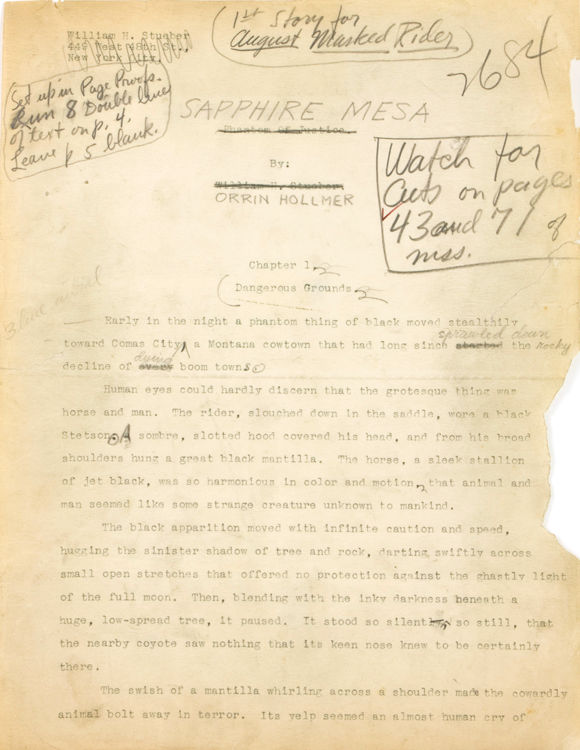 William H. Stueber
449 West 48th St.,
New York City.
1st Story for
August Masked Rider
2684
Set up in Page Proofs.
Run 8 Double lines
of text on p. 4.
Leave p 5 blank.
SAPPHIRE MESA
Phantom Of Justice.
By:
William H. Stueber
ORRIN HOLLMER
Watch for
Cuts on pages
43 and 71 of
mss.
Chapter 1.
Dangerous Grounds.
Early in the night a phantom thing of black moved stealthily
sprawled down
toward Comas City, a Montana cowtown that had long since started the rocky
dying
decline of every boom towns.
Human eyes could hardly discern that the grotesque thing was
horse and man. The rider, slouched down in the saddle, wore a black
Stetson. A sombre, slotted hood covered his head, and from his broad
shoulders hung a great black mantilla. The horse, a sleek stallion
of jet black, was so harmonious in color and motion, that animal and
man seemed like some strange creature unknown to mankind.
The black apparition moved with infinite caution and speed,
hugging the sinister shadow of tree and rock, darting swiftly across
small open stretches that offered no protection against the ghastly light
of the full moon. Then, blending with the inky darkness beneath a
huge, low-spread tree, it paused. It stood so silent, so still, that
the nearby coyote saw nothing that its keen nose knew to be certainly
there.
The swish of a mantilla whirling across a shoulder made the cowardly
animal bolt away in terror. Its yelp seemed an almost human cry of